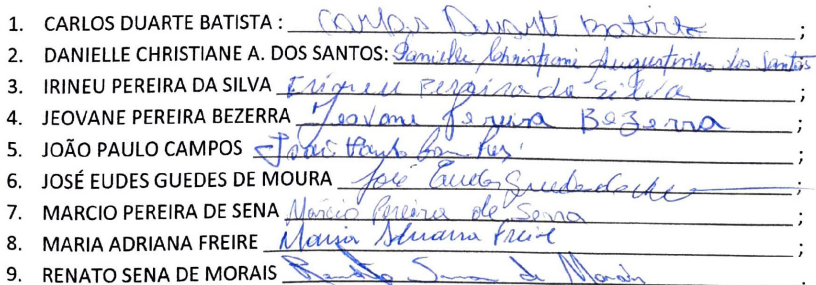 1. CARLOS DUARTE BATISTA : Carlos Duarte Batista ;
2. DANIELLE CHRISTIANE A. DOS SANTOS: Danielle Christiani Augustinho dos Santos
3. IRINEU PEREIRA DA SILVA Irineu Pereira da Silva ;
4. JEOVANE PEREIRA BEZERRA Jeovane Pereira Bezerra ;
5. JOÃO PAULO CAMPOS João Paulo ;
6. JOSÉ EUDES GUEDES DE MOURA José Eudes Guedes de ;
7. MARCIO PEREIRA DE SENA Marcio Pereira de Sena ;
8. MARIA ADRIANA FREIRE Maria Adriana Freire ;
9. RENATO SENA DE MORAIS Renato Sena de Morais .